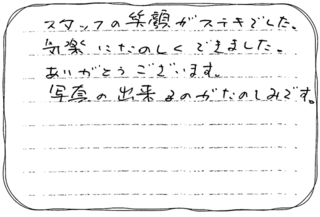 スタッフの笑顔がステキでした。
気楽にたのしくできました。
ありがとうございます。
写真の出来るのがたのしみです。